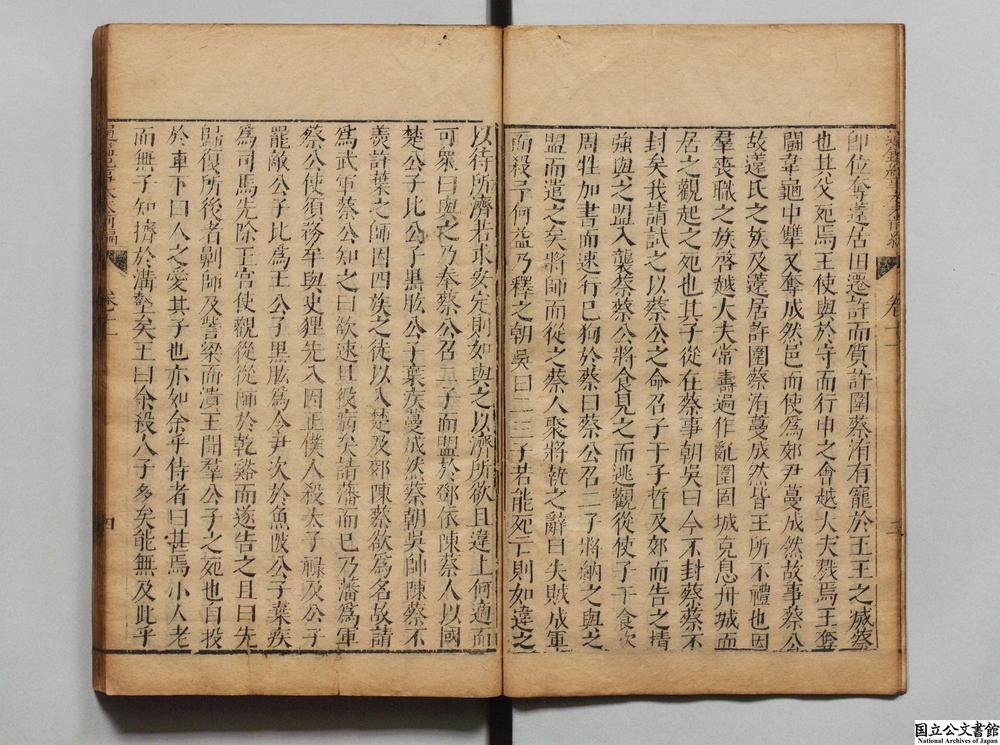 即位奪薳居田遷許而質許圍蔡洧有寵於王王之滅蔡
也其父死焉王使與於守而行申之會越大夫戮焉王奪
鬭韋龜中犨又奪成然邑而使為郊尹蔓成然故事蔡公
故薳氏之族及薳居許圍蔡洧蔓成然皆王所不禮也因
羣喪職之族啓越大夫常壽過作亂圍固城克息舟城而
居之觀起之死也其子從在蔡事朝吳曰今不封蔡蔡不
封矣我請試之以蔡公之命召子干子晳及郊而告之情
強與之盟入襲蔡蔡公將食見之而逃觀從使子干食坎
用牲加書而速行已狥於蔡曰蔡公召二子將納之與之
盟而遣之矣將師而從之蔡人聚將執之辭曰失賊成軍
而殺予何益乃釋之朝吳曰二三子若能死亡則如違之
卷二
三
以待所濟若求安定則如與之以濟所欲且違上何適而
可衆曰與之乃奉蔡公召二子而盟於鄧依陳蔡人以國
楚公子比公子黑肱公子棄疾蔓成然蔡朝吳帥陳蔡不
羹許葉之師因四族之徒以入楚及郊陳蔡欲為名故請
為武軍蔡公知之曰欲速且役病矣請藩而已乃藩為軍
蔡公使須務牟與史猈先入因正僕人殺太子祿及公子
罷敵公子比為王公子黑肱為令尹次於魚陂公子棄疾
為司馬先除王宮使觀從從師於乾谿而遂告之且曰先
歸復所後者劓師及訾梁而潰王聞羣公子之死也自投
於車下曰人之愛其子也亦如余乎侍者曰甚焉小人老
而無子知擠於溝壑矣王曰余殺人子多矣能無及此乎
卷二
四
国立公文書館
National Archives of Japan